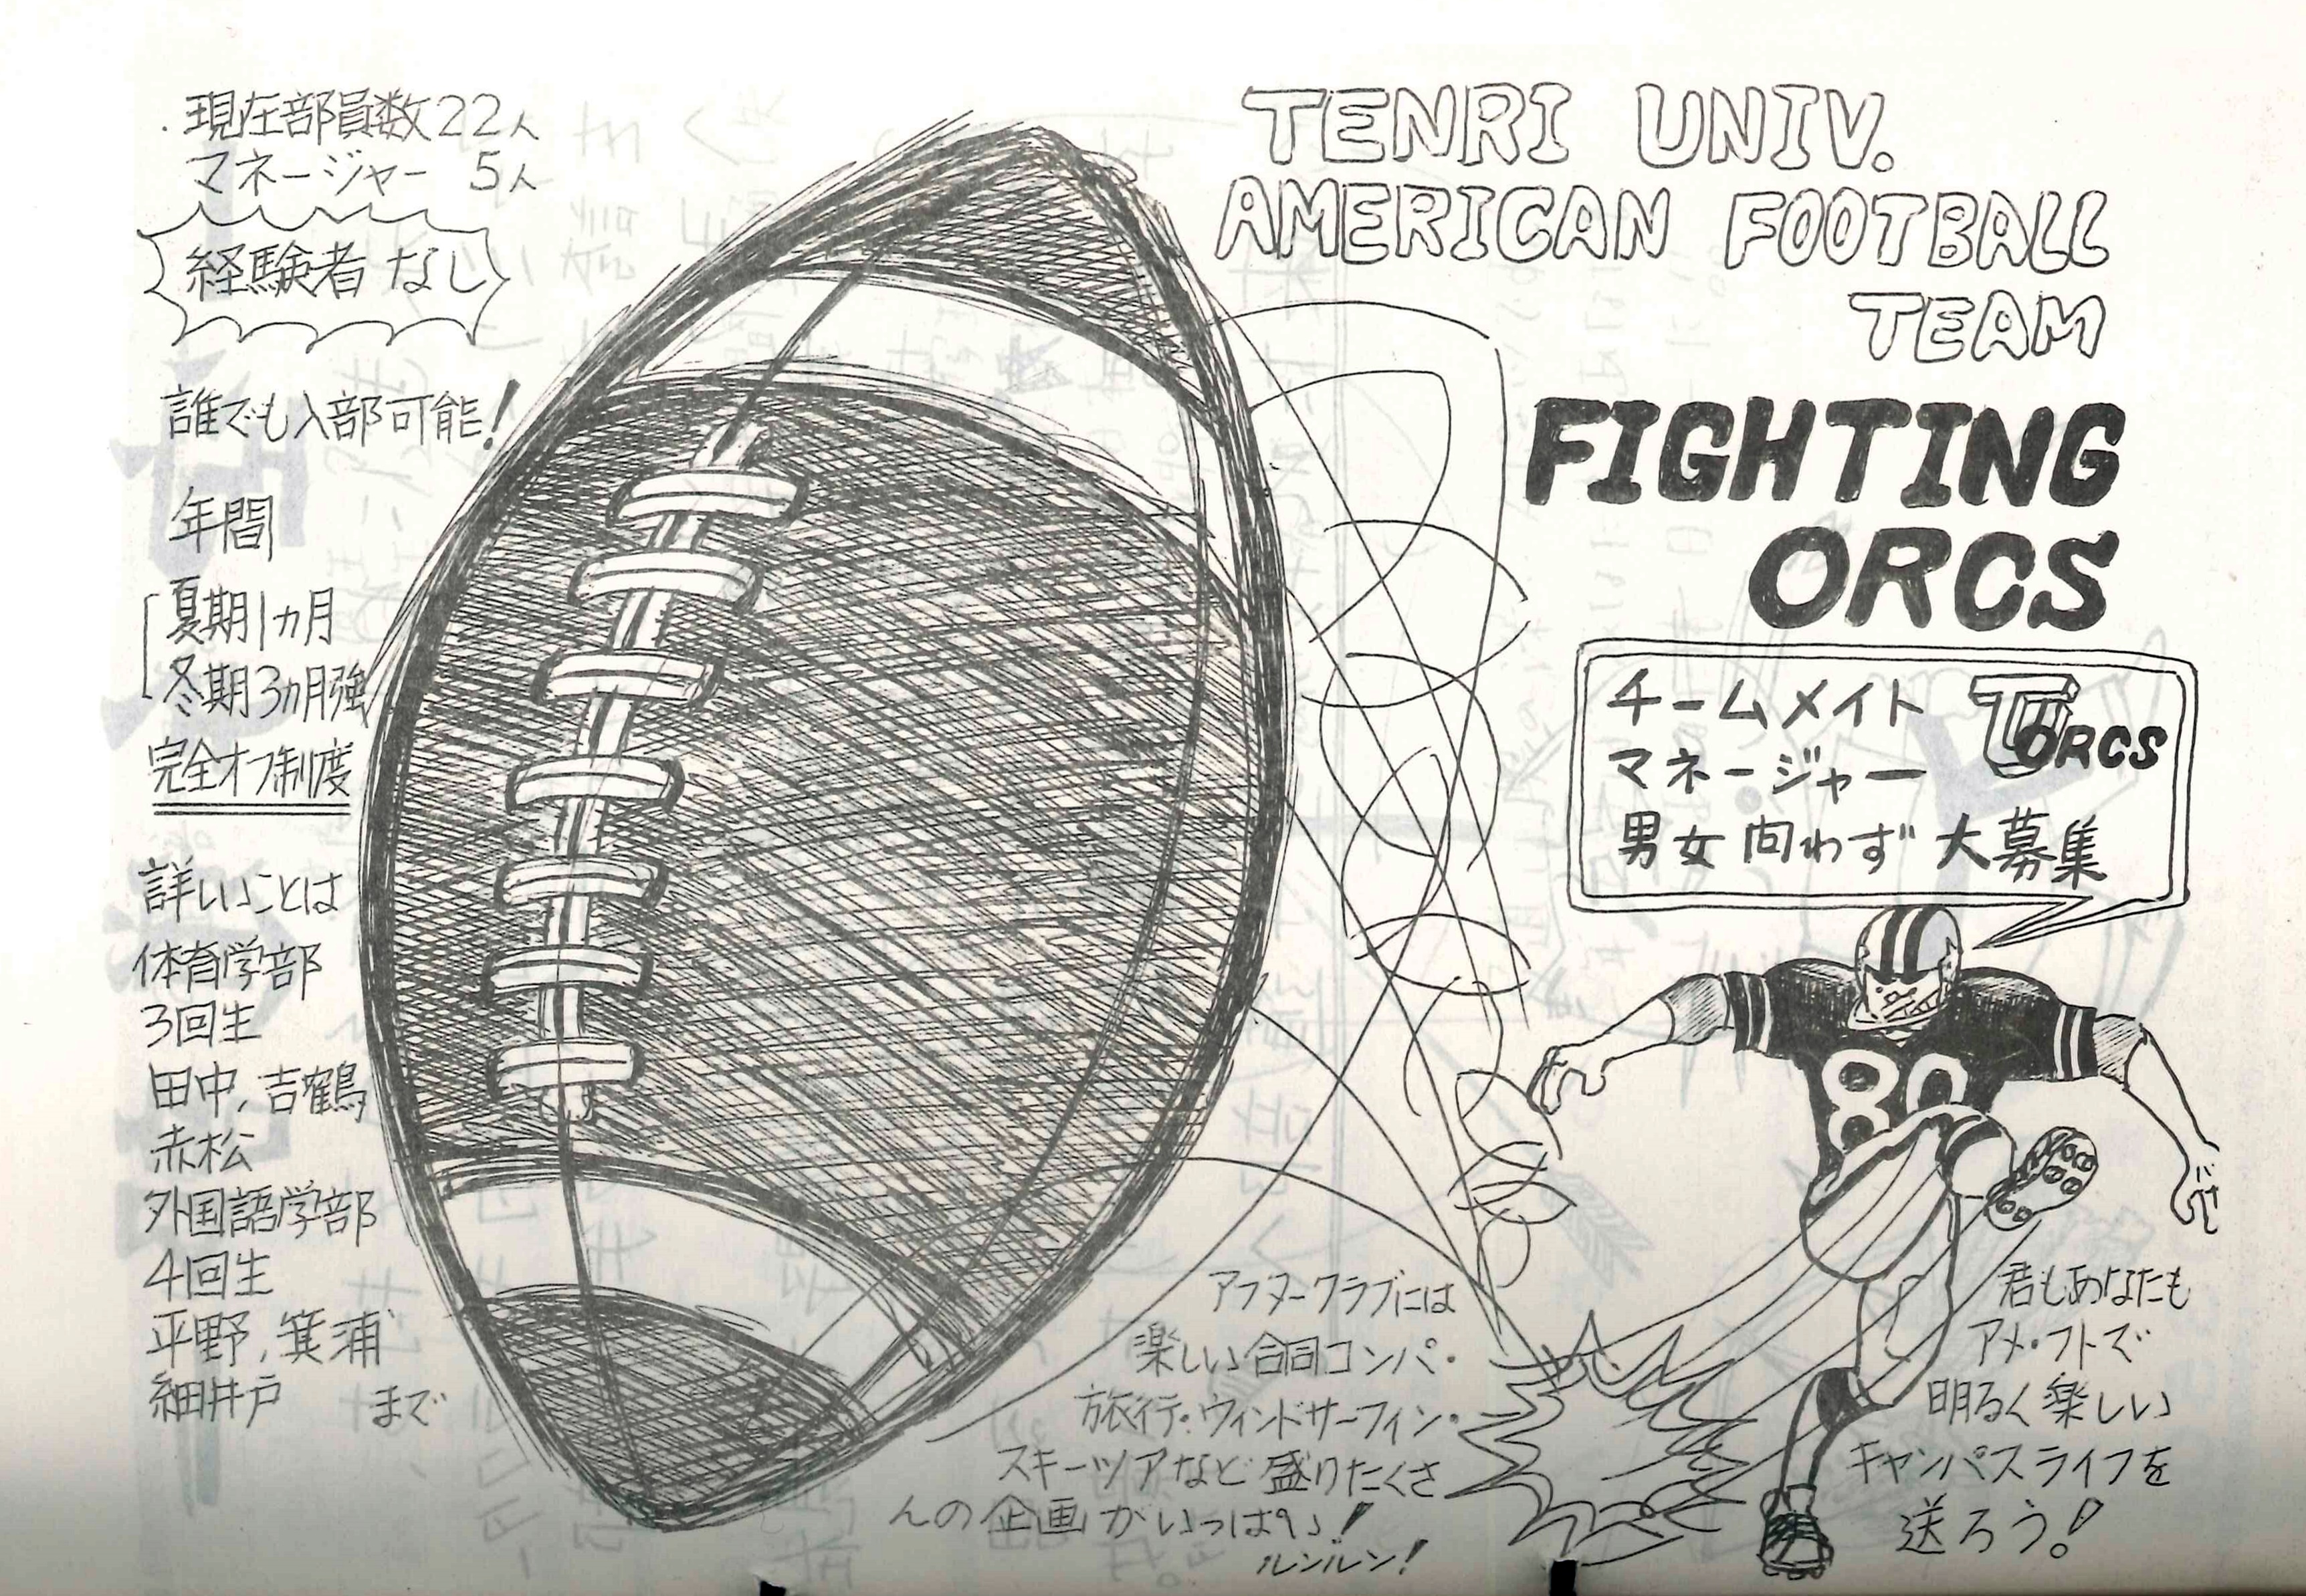 現在部員数22人
マネージャー 5人
経験者 なし
誰でも入部可能!
年間
夏期1ヵ月
冬期3ヵ月強
完全オフ制度
詳しいことは
体育学部
3回生
田中, 吉鶴
赤松
外国語学部
4回生
平野, 箕浦
細井戸 まで
TENRI UNIV.
AMERICAN FOOTBALL
TEAM
FIGHTING
ORCS
チームメイト
マネージャー
男女問わず 大募集
TU ORCS
80
アフタークラブには
楽しい合同コンパ・
旅行・ウィンドサーフィン・
スキーツアなど盛りたくさ
んの企画がいっぱい!
ルンルン!
君もあなたも
アメ・フトで
明るく楽しい
キャンパスライフを
送ろう!